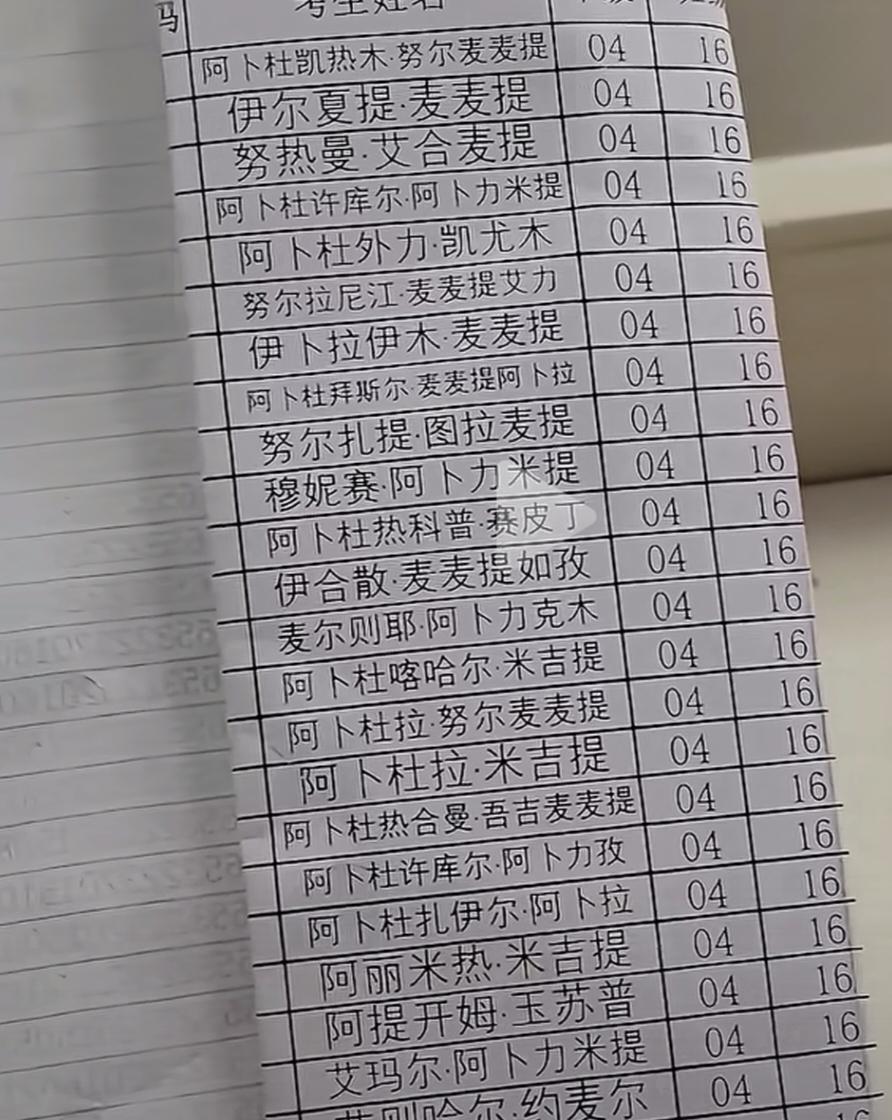 码 考生姓名
阿卜杜凯热木·努尔麦麦提 04 16
伊尔夏提·麦麦提 04 16
努热曼·艾合麦提 04 16
阿卜杜许库尔·阿卜力米提 04 16
阿卜杜外力·凯尤木 04 16
努尔拉尼江·麦麦提艾力 04 16
伊卜拉伊木·麦麦提 04 16
阿卜杜拜斯尔·麦麦提阿卜拉 04 16
努尔扎提·图拉麦提 04 16
穆妮赛·阿卜力米提 04 16
阿卜杜热科普·赛皮丁 04 16
伊合散·麦麦提如孜 04 16
麦尔则耶·阿卜力克木 04 16
阿卜杜喀哈尔·米吉提 04 16
阿卜杜拉·努尔麦麦提 04 16
阿卜杜拉·米吉提 04 16
阿卜杜热合曼·吾吉麦麦提 04 16
阿卜杜许库尔·阿卜力孜 04 16
阿卜杜扎伊尔·阿卜拉 04 16
阿丽米热·米吉提 04 16
阿提开姆·玉苏普 04 16
艾玛尔·阿卜力米提 04 16
哈尔·约麦尔 04 16